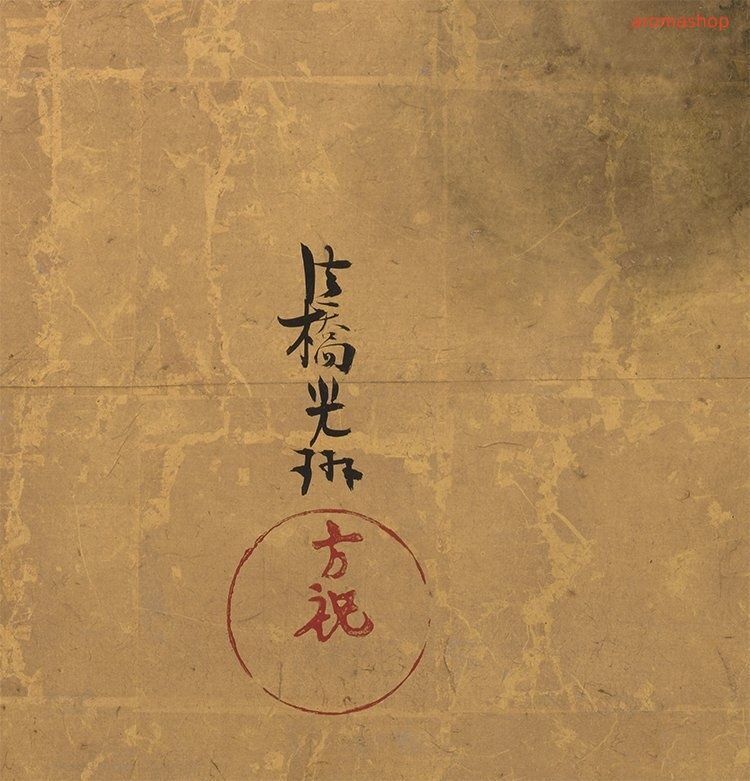 aromashop
法橋光琳
方祝